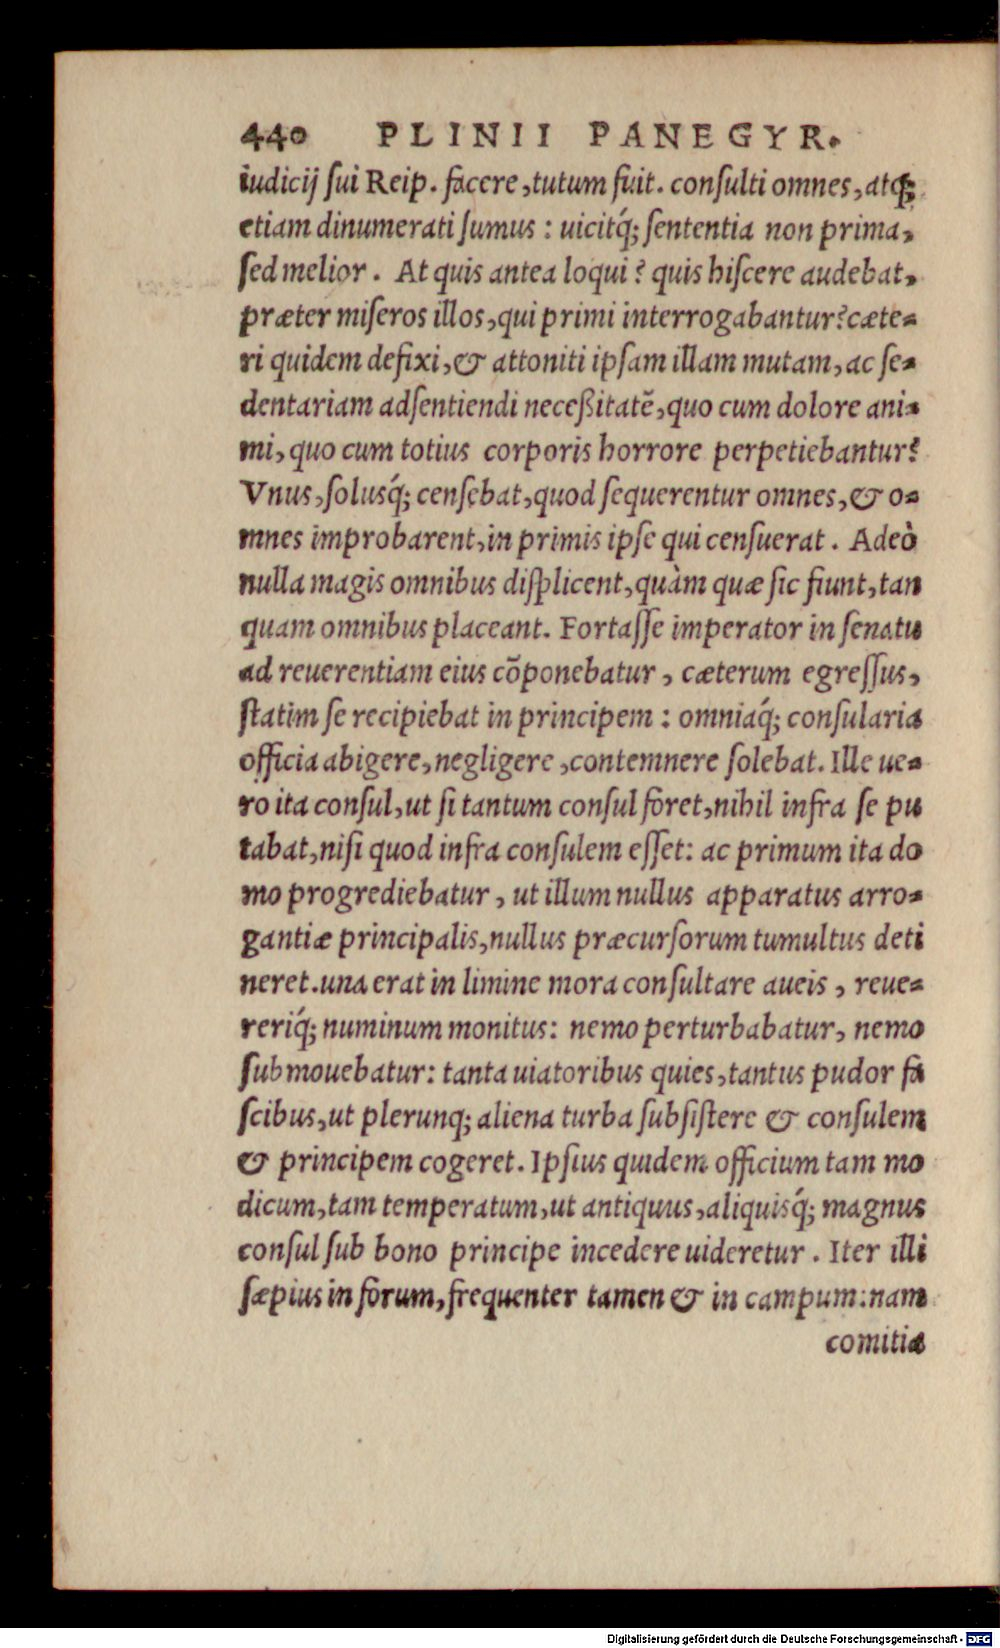 440 PLINII PANEGYR.
iudicij sui Reip. facere, tutum fuit. consulti omnes, atq;
etiam dinumerati sumus : uicitq́; sententia non prima,
sed melior. At quis antea loqui? quis hiscere audebat,
præter miseros illos, qui primi interrogabantur? cæte-
ri quidem defixi, & attoniti ipsam illam mutam, ac se-
dentariam adsentiendi neceßitatẽ, quo cum dolore ani-
mi, quo cum totius corporis horrore perpetiebantur?
Vnus, solusq́; censebat, quod sequerentur omnes, & o-
mnes improbarent, in primis ipse qui censuerat. Adeò
nulla magis omnibus displicent, quàm quæ sic fiunt, tan
quam omnibus placeant. Fortasse imperator in senatu
ad reuerentiam eius cõponebatur, cæterum egressus,
statim se recipiebat in principem : omniaq́; consularia
officia abigere, negligere, contemnere solebat. Ille ue-
ro ita consul, ut si tantum consul foret, nihil infra se pu
tabat, nisi quod infra consulem esset: ac primum ita do
mo progrediebatur, ut illum nullus apparatus arro-
gantiæ principalis, nullus præcursorum tumultus deti
neret. una erat in limine mora consultare aueis, reue-
reriq́; numinum monitus: nemo perturbabatur, nemo
submouebatur: tanta uiatoribus quies, tantus pudor fa
scibus, ut plerunq; aliena turba subsistere & consulem
& principem cogeret. Ipsius quidem officium tam mo
dicum, tam temperatum, ut antiquus, aliquisq́; magnus
consul sub bono principe incedere uideretur. Iter illi
sæpius in forum, frequenter tamen & in campum: nam
comitia
Digitalisierung gefördert durch die Deutsche Forschungsgemeinschaft - DFG